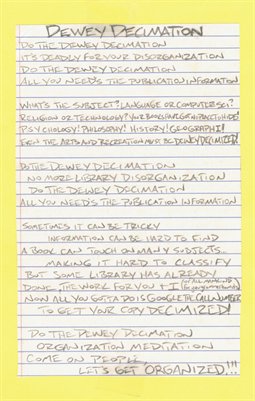 DEWEY DECIMATION
DO THE DEWEY DECIMATION
IT'S DEADLY FOR YOUR DISORGANIZATION
DO THE DEWEY DECIMATION
ALL YOU NEED'S THE PUBLICATION INFORMATION
WHAT'S THE SUBJECT? LANGUAGE OR COMPUTER SCI?
RELIGION OR TECHNOLOGY? YOUR BOOKS HAVE GOT NO PLACE TO HIDE!
PSYCHOLOGY! PHILOSOPHY! HISTORY! GEOGRAPHY!
EVEN THE ARTS AND RECREATION MUST BE DEWEY DECIMIZED!
DO THE DEWEY DECIMATION
NO MORE LIBRARY DISORGANIZATION
DO THE DEWEY DECIMATION
ALL YOU NEED'S THE PUBLICATION INFORMATION
SOMETIMES IT CAN BE TRICKY
INFORMATION CAN BE HARD TO FIND
A BOOK CAN TOUCH ON MANY SUBJECTS...
MAKING IT HARD TO CLASSIFY
BUT SOME LIBRARY HAS ALREADY
DONE THE WORK FOR YOU + I (FOR ALL MANKIND
NOW ALL YOU GOTTA DO IS GOOGLE THE CALL NUMBER
TO GET YOUR COPY DECIMIZED!
DO THE DEWEY DECIMATION
ORGANIZATION MEDITATION
COME ON PEOPLE
LET'S GET ORGANIZED!!!